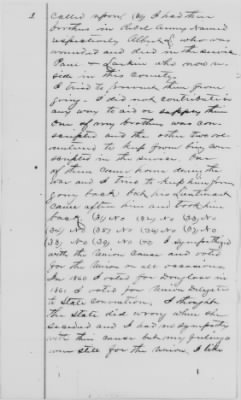 3.
called upon. (29) I had three
brothers in Rebel Army named
respectively Albert L. who was
wounded and died in the service
Paul & Larkin who now re-
side in this county.
I tried to prevent them from
going. I did not contribute in
any way to aid or supply them
One of my brothers was con-
scripted and the other two vol-
unteered to keep from being con-
scripted in the service. One
of them came home during the
war and I tried to keep him from
going back but his Lieutenant
came after him and took him
back. (31) No (32) No (33) No
(34) No (35) No (36) No (37) No
(38) No (39) No (40) I sympathized
with the Union Cause and voted
for the Union on all occasions
In 1860 I voted for Douglas in
1861 I voted for Union Delegates
to State convention. I thought
the State did wrong when she
seceded and I had no sympathy
with their cause but my feelings
were still for the Union. I like